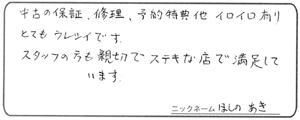 中古の保証、修理、予約特典他 イロイロ有り
とてもウレシイです。
スタッフの方も親切でステキな店で満足して
います。
ニックネーム ほしの あき